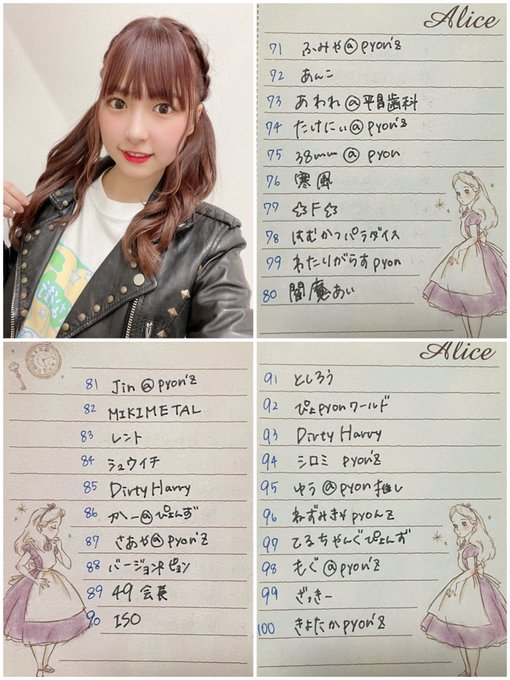 Alice
71 ふみや@pyon'z
72 あんこ
73 あわれ@平目歯科
74 たけにぃ@pyon'z
75 38mm@pyon
76 寒風
77 ☆F☆
78 はむかつパラダイス
79 わたりがらすpyon
80 閻魔あい
81 Jin@pyon'z
82 MIKIMETAL
83 レント
84 シュウイチ
85 Dirty Harry
86 かー@ぴょんず
87 さあや@pyon'z
88 バージョンピョン
89 49会長
90 ISO
Alice
91 としろう
92 ぴょpyonワールド
93 Dirty Harry
94 シロミ pyon'z
95 ゆう@pyon推し
96 ねずみきちpyonz
97 てるちゃんぐぴょんず
98 もぐ@pyon'z
99 ざっきー
100 きよたかpyon'z